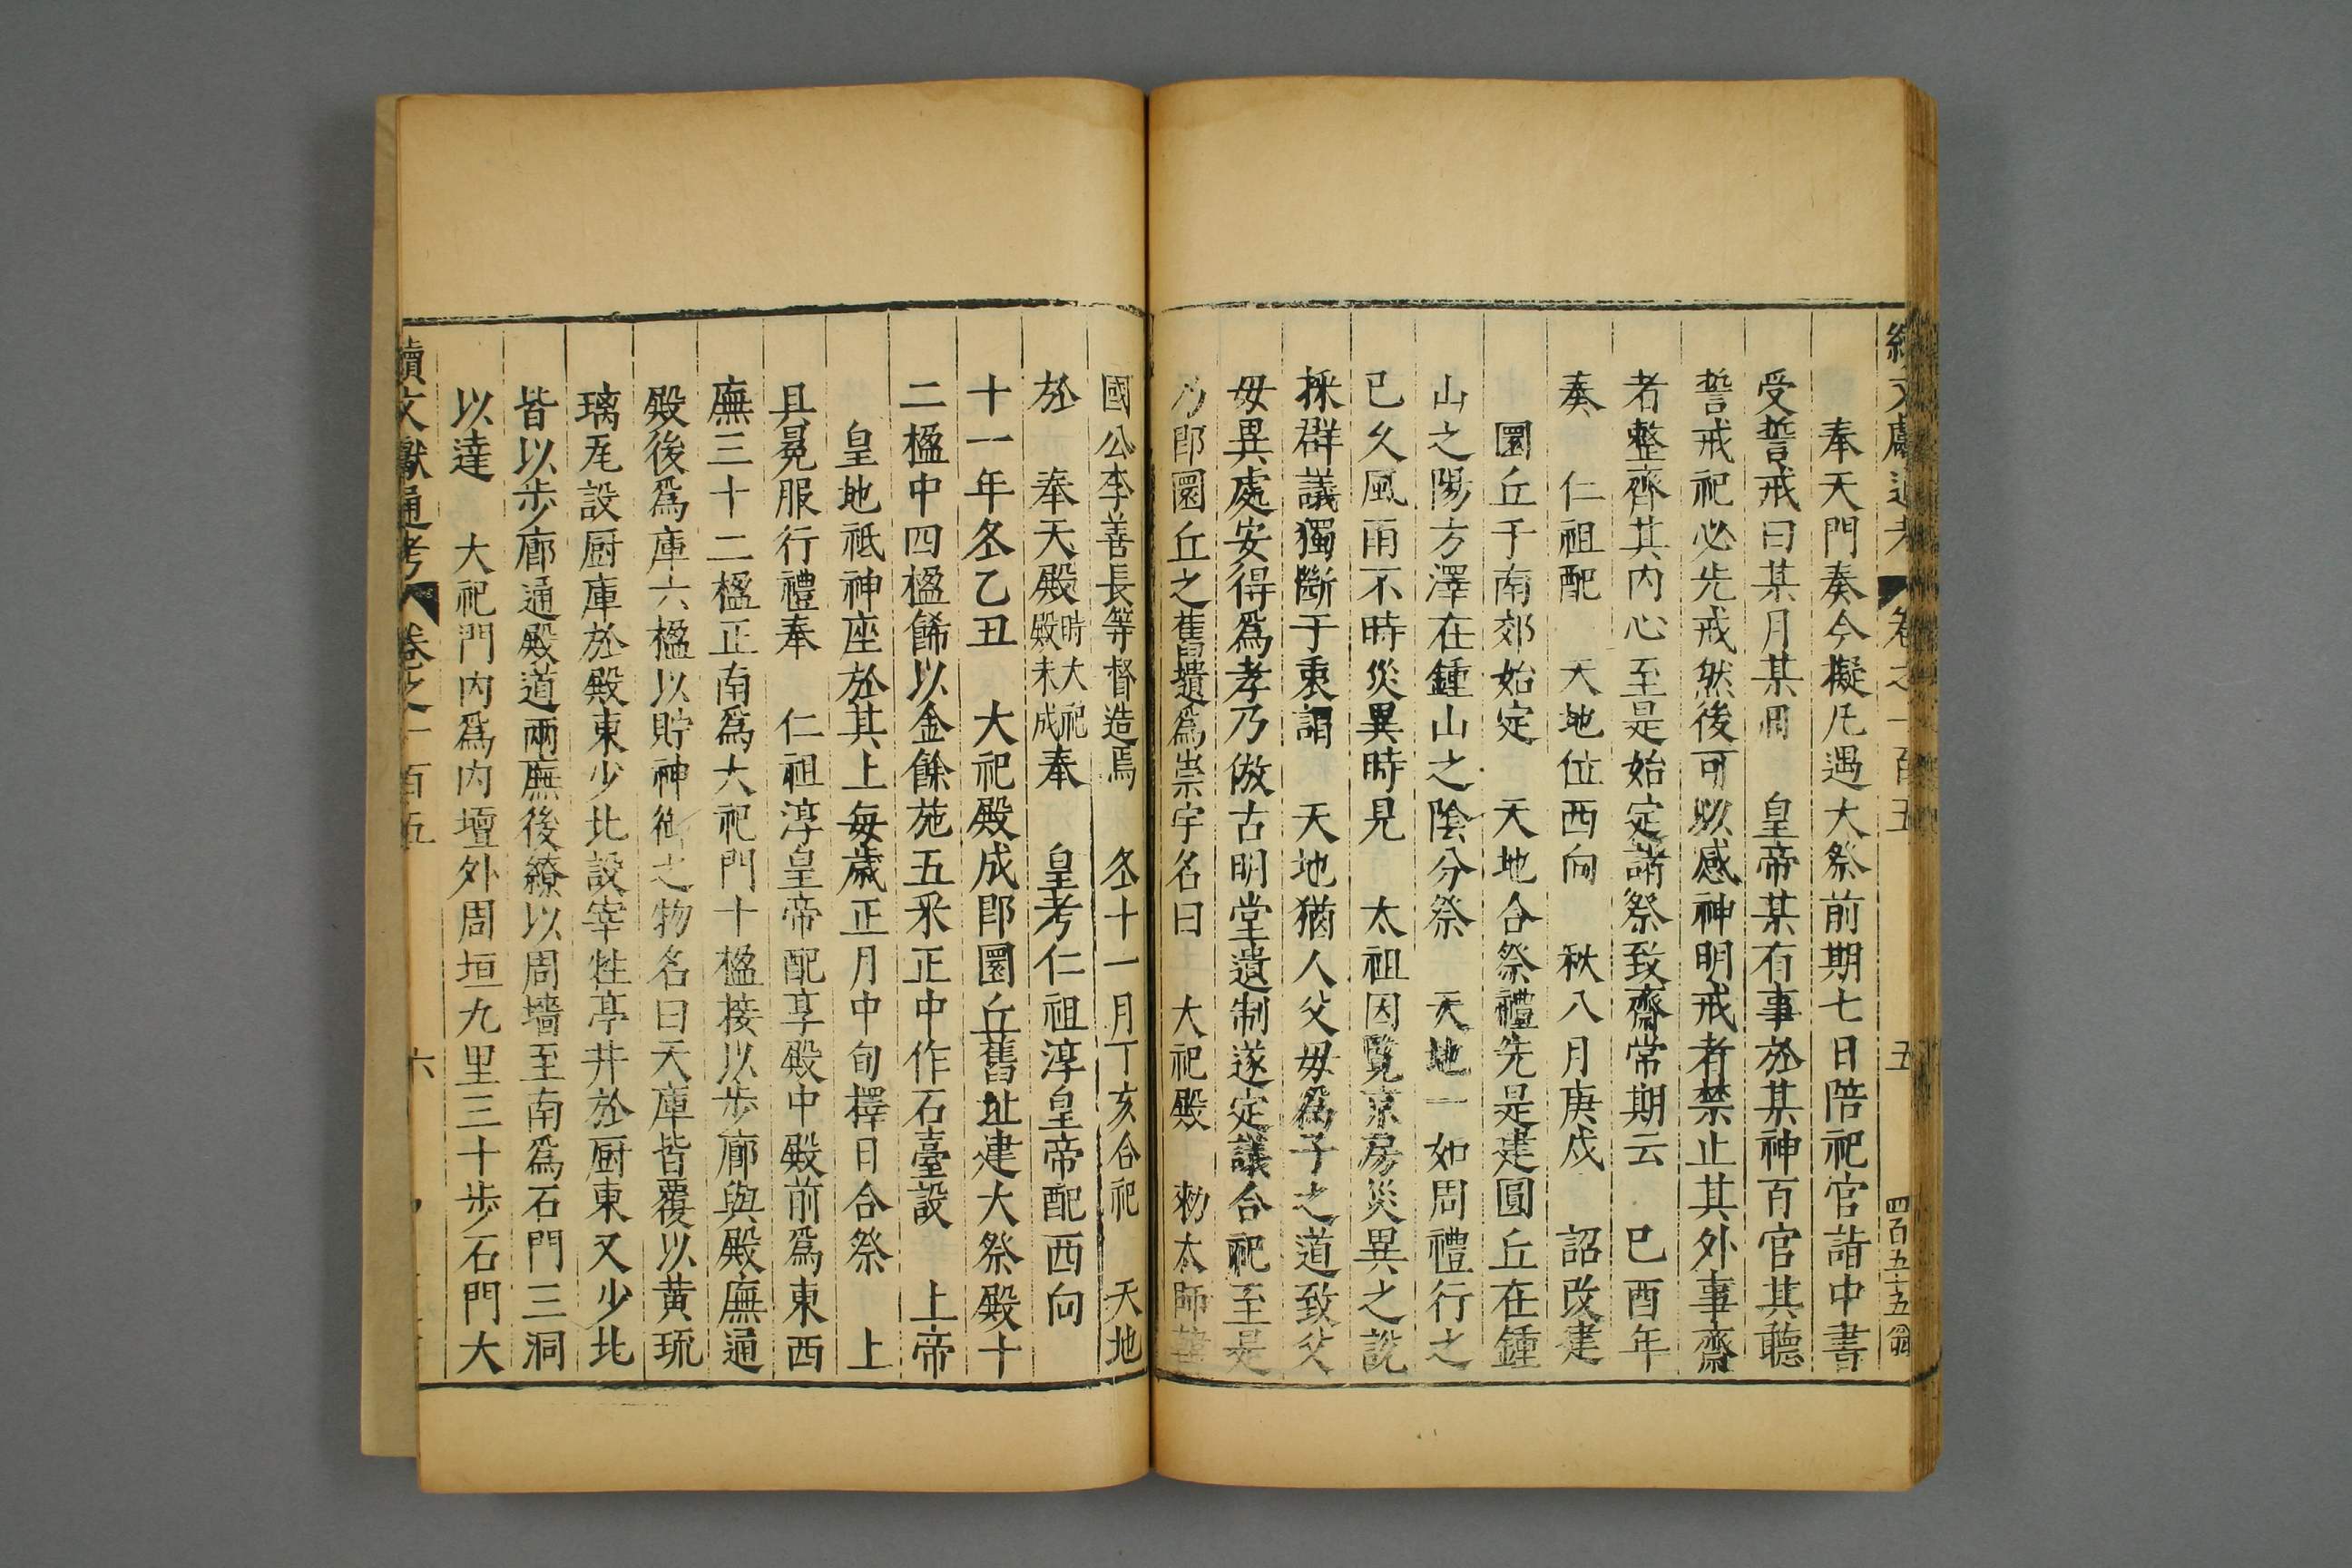 續文獻通考 卷之一百五 五 四百五十五 翁
奉天門奏今擬凡遇大祭前期七日陪祀官詣中書
受誓戒曰某月某周 皇帝某有事於某神百官其聽
誓戒祀必先戒然後可以感神明戒者禁止其外事齋
者整齊其内心至是始定諸祭致齋常期云 巳酉年
奏 仁祖配 天地位西向 秋八月庚戌 詔改建
圜丘于南郊始定 天地合祭禮先是建圓丘在鍾
山之陽方澤在鍾山之陰分祭 天地一如周禮行之
已久風雨不時災異時見 太祖因覽京房災異之說
採群議獨斷于衷謂 天地猶人父毋爲子之道致父
毋異處安得爲孝乃倣古明堂遺制遂定議合祀至是
乃卽圜丘之舊壝爲崇宇名曰 大祀殿 勑太師韓
國公李善長等督造焉 冬十一月丁亥合祀 天地
於 奉天殿時大祀殿未成奉 皇考仁祖淳皇帝配西向
十一年冬乙丑 大祀殿成卽圜丘舊址建大祭殿十
二楹中四楹餙以金餘施五采正中作石臺設 上帝
皇地祇神座於其上每歲正月中旬擇日合祭 上
具冕服行禮奉 仁祖淳皇帝配享殿中殿前爲東西
廡三十二楹正南爲大祀門十楹接以步廊與殿廡通
殿後爲庫六楹以貯神御之物名曰天庫皆覆以黃琉
璃瓦設厨庫於殿東少北設宰牲亭井於厨東又少北
皆以步廊通殿道兩廡後繚以周墻至南爲石門三洞
以達 大祀門内爲内壇外周垣九里三十步石門大
續文獻通考 卷之一百五 六